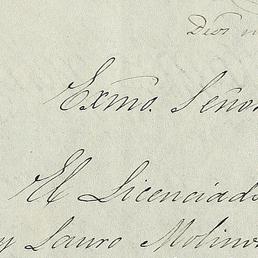 Exmo. Señor
El Licenciado
y Lauro Molina